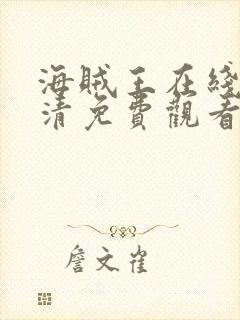 海贼王在綫
清免費觀看
詹文雀